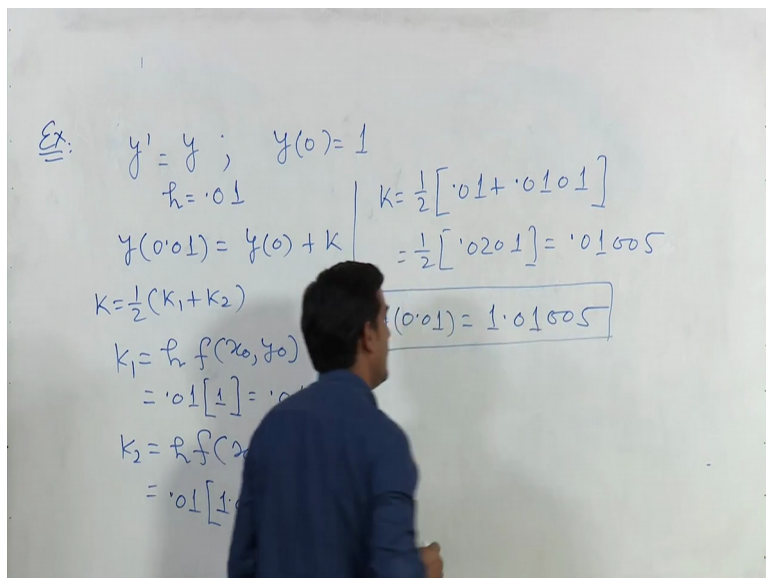 Ex: y' = y ; y(0) = 1
h = .01
y(0.01) = y(0) + K
K = 1/2 (K₁ + K₂)
K₁ = h f(x₀, y₀)
= .01[1] = .0
K₂ = h f(x
= .01[1.
K = 1/2 [.01 + .0101]
= 1/2 [.0201] = .01005
(0.01) = 1.01005